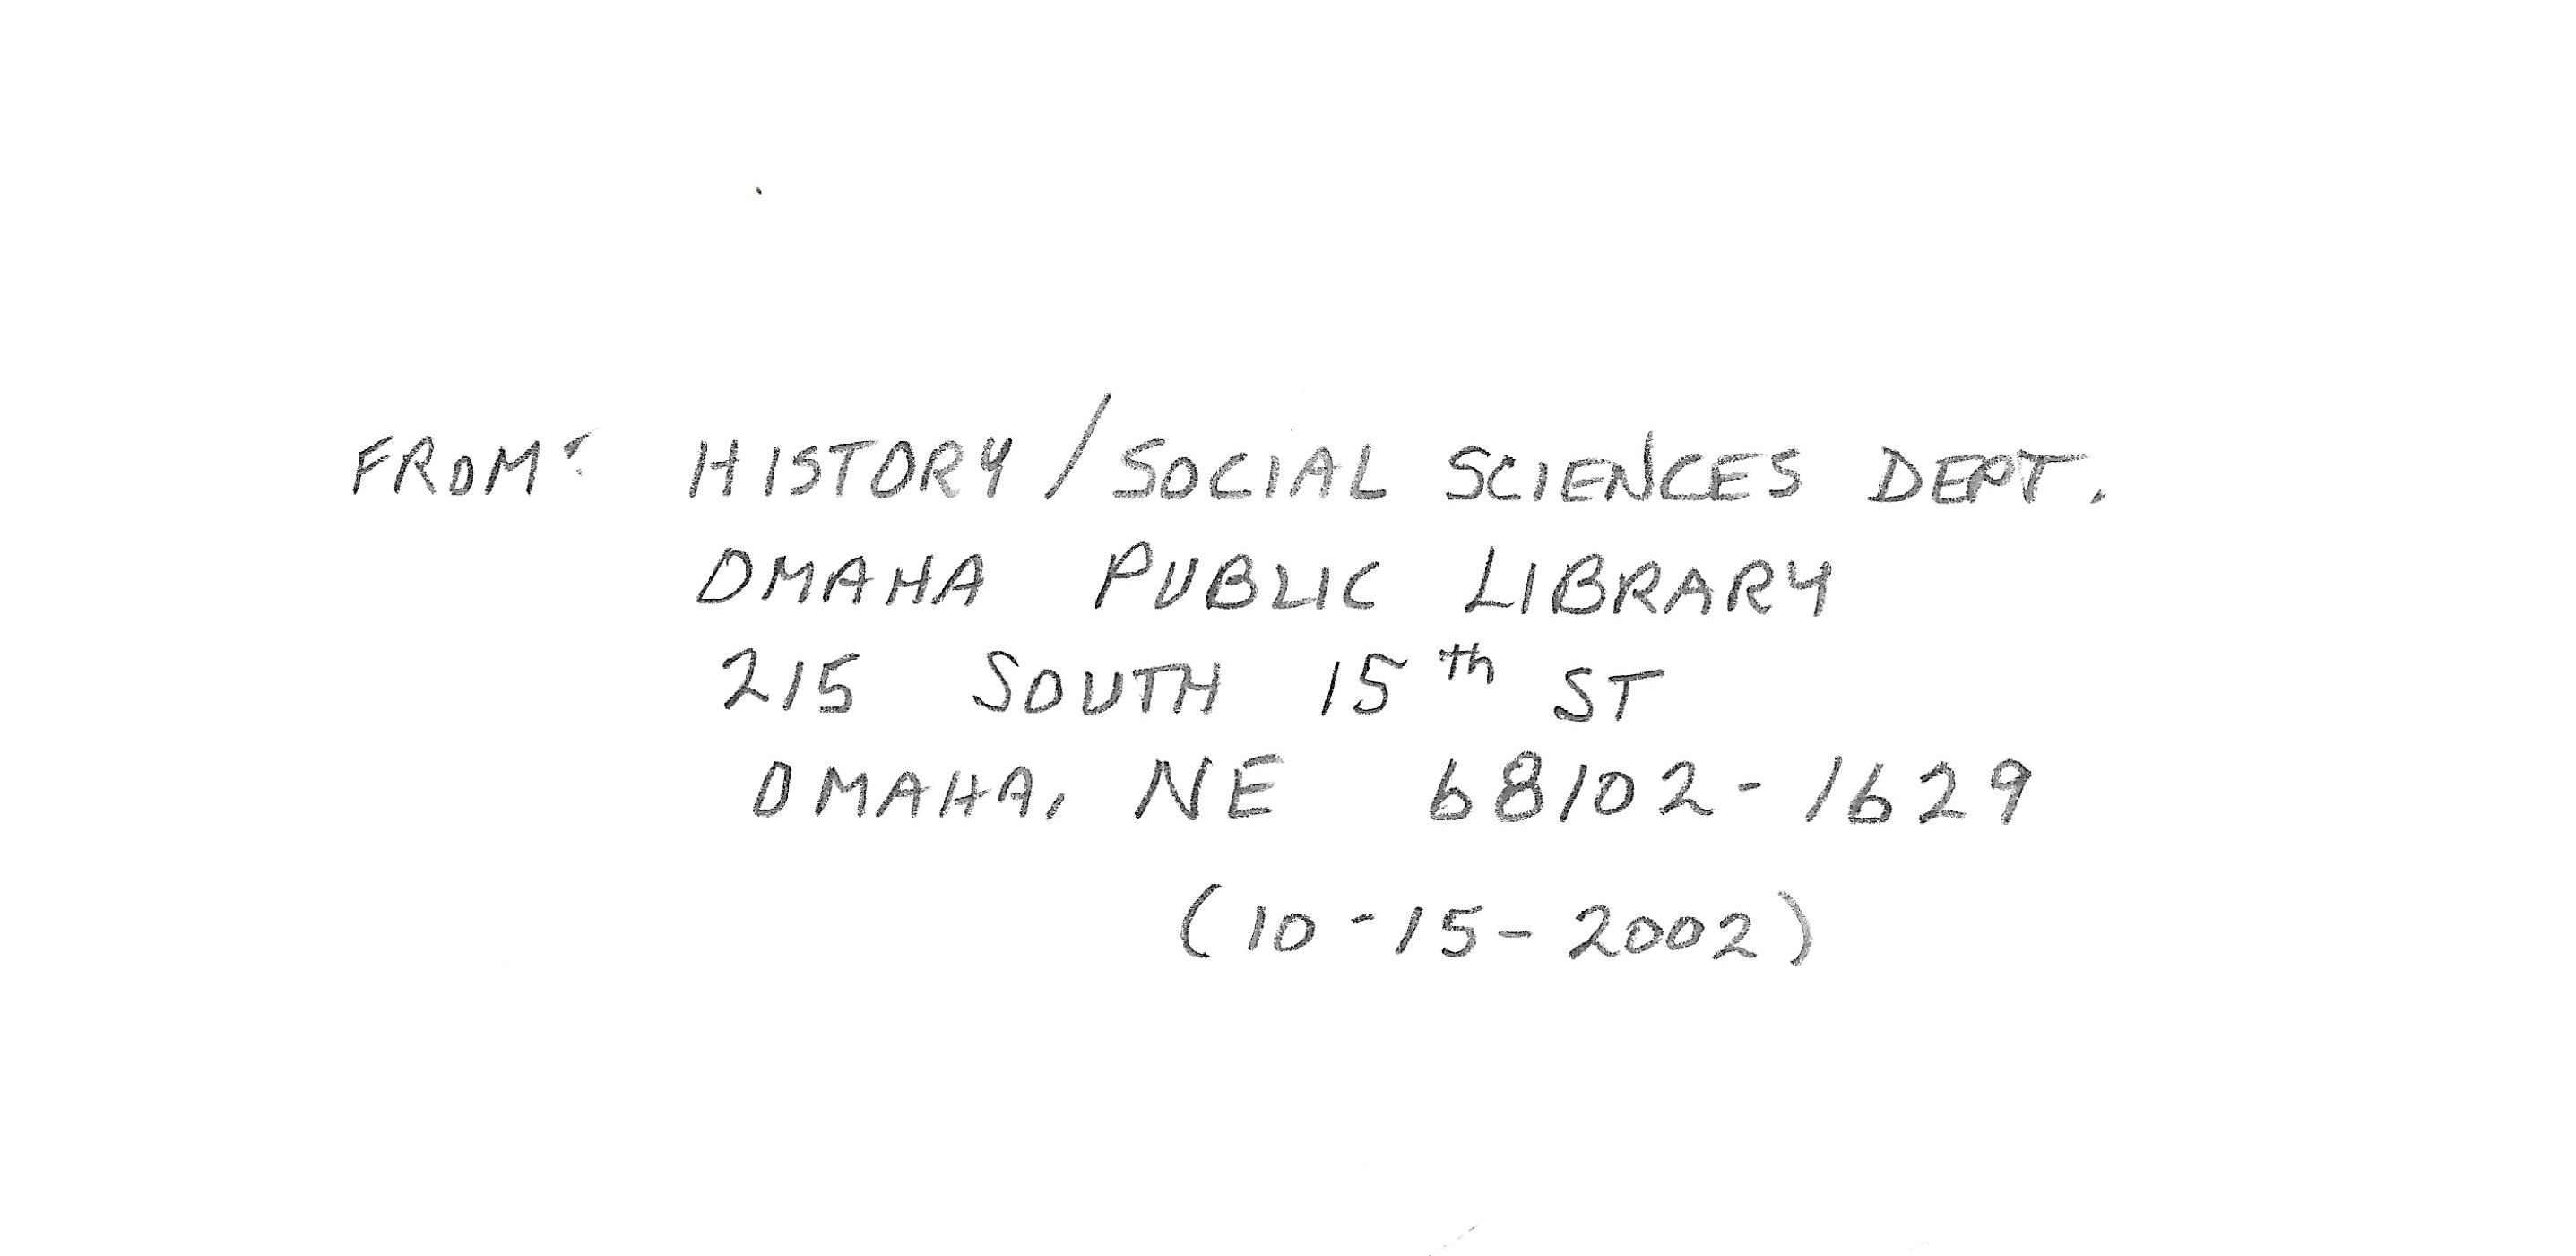 FROM: HISTORY / SOCIAL SCIENCES DEPT.
OMAHA PUBLIC LIBRARY
215 SOUTH 15th ST
OMAHA, NE 68102-1629
(10-15-2002)